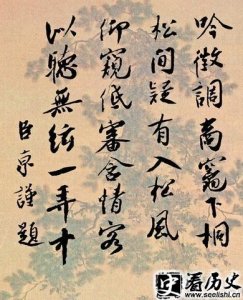 吟徵調商竈下桐
松間疑有入松風
仰窺低審含情客
以聽無絃一弄中
臣京謹題
看历史
www.seelishi.cn